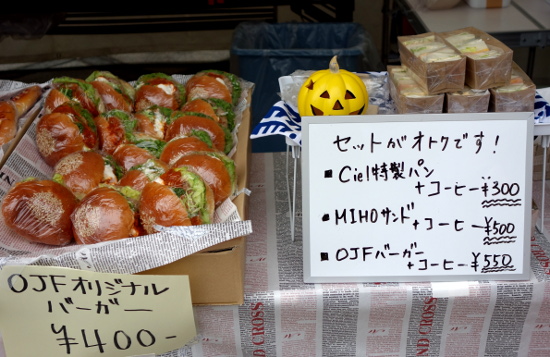 セットがオトクです!
▪Ciel特製パン
+コーヒー¥300
▪MIHOサンド+コーヒー¥500
▪OJFバーガー
+コーヒー¥550
OJFオリジナル
バーガー
¥400-